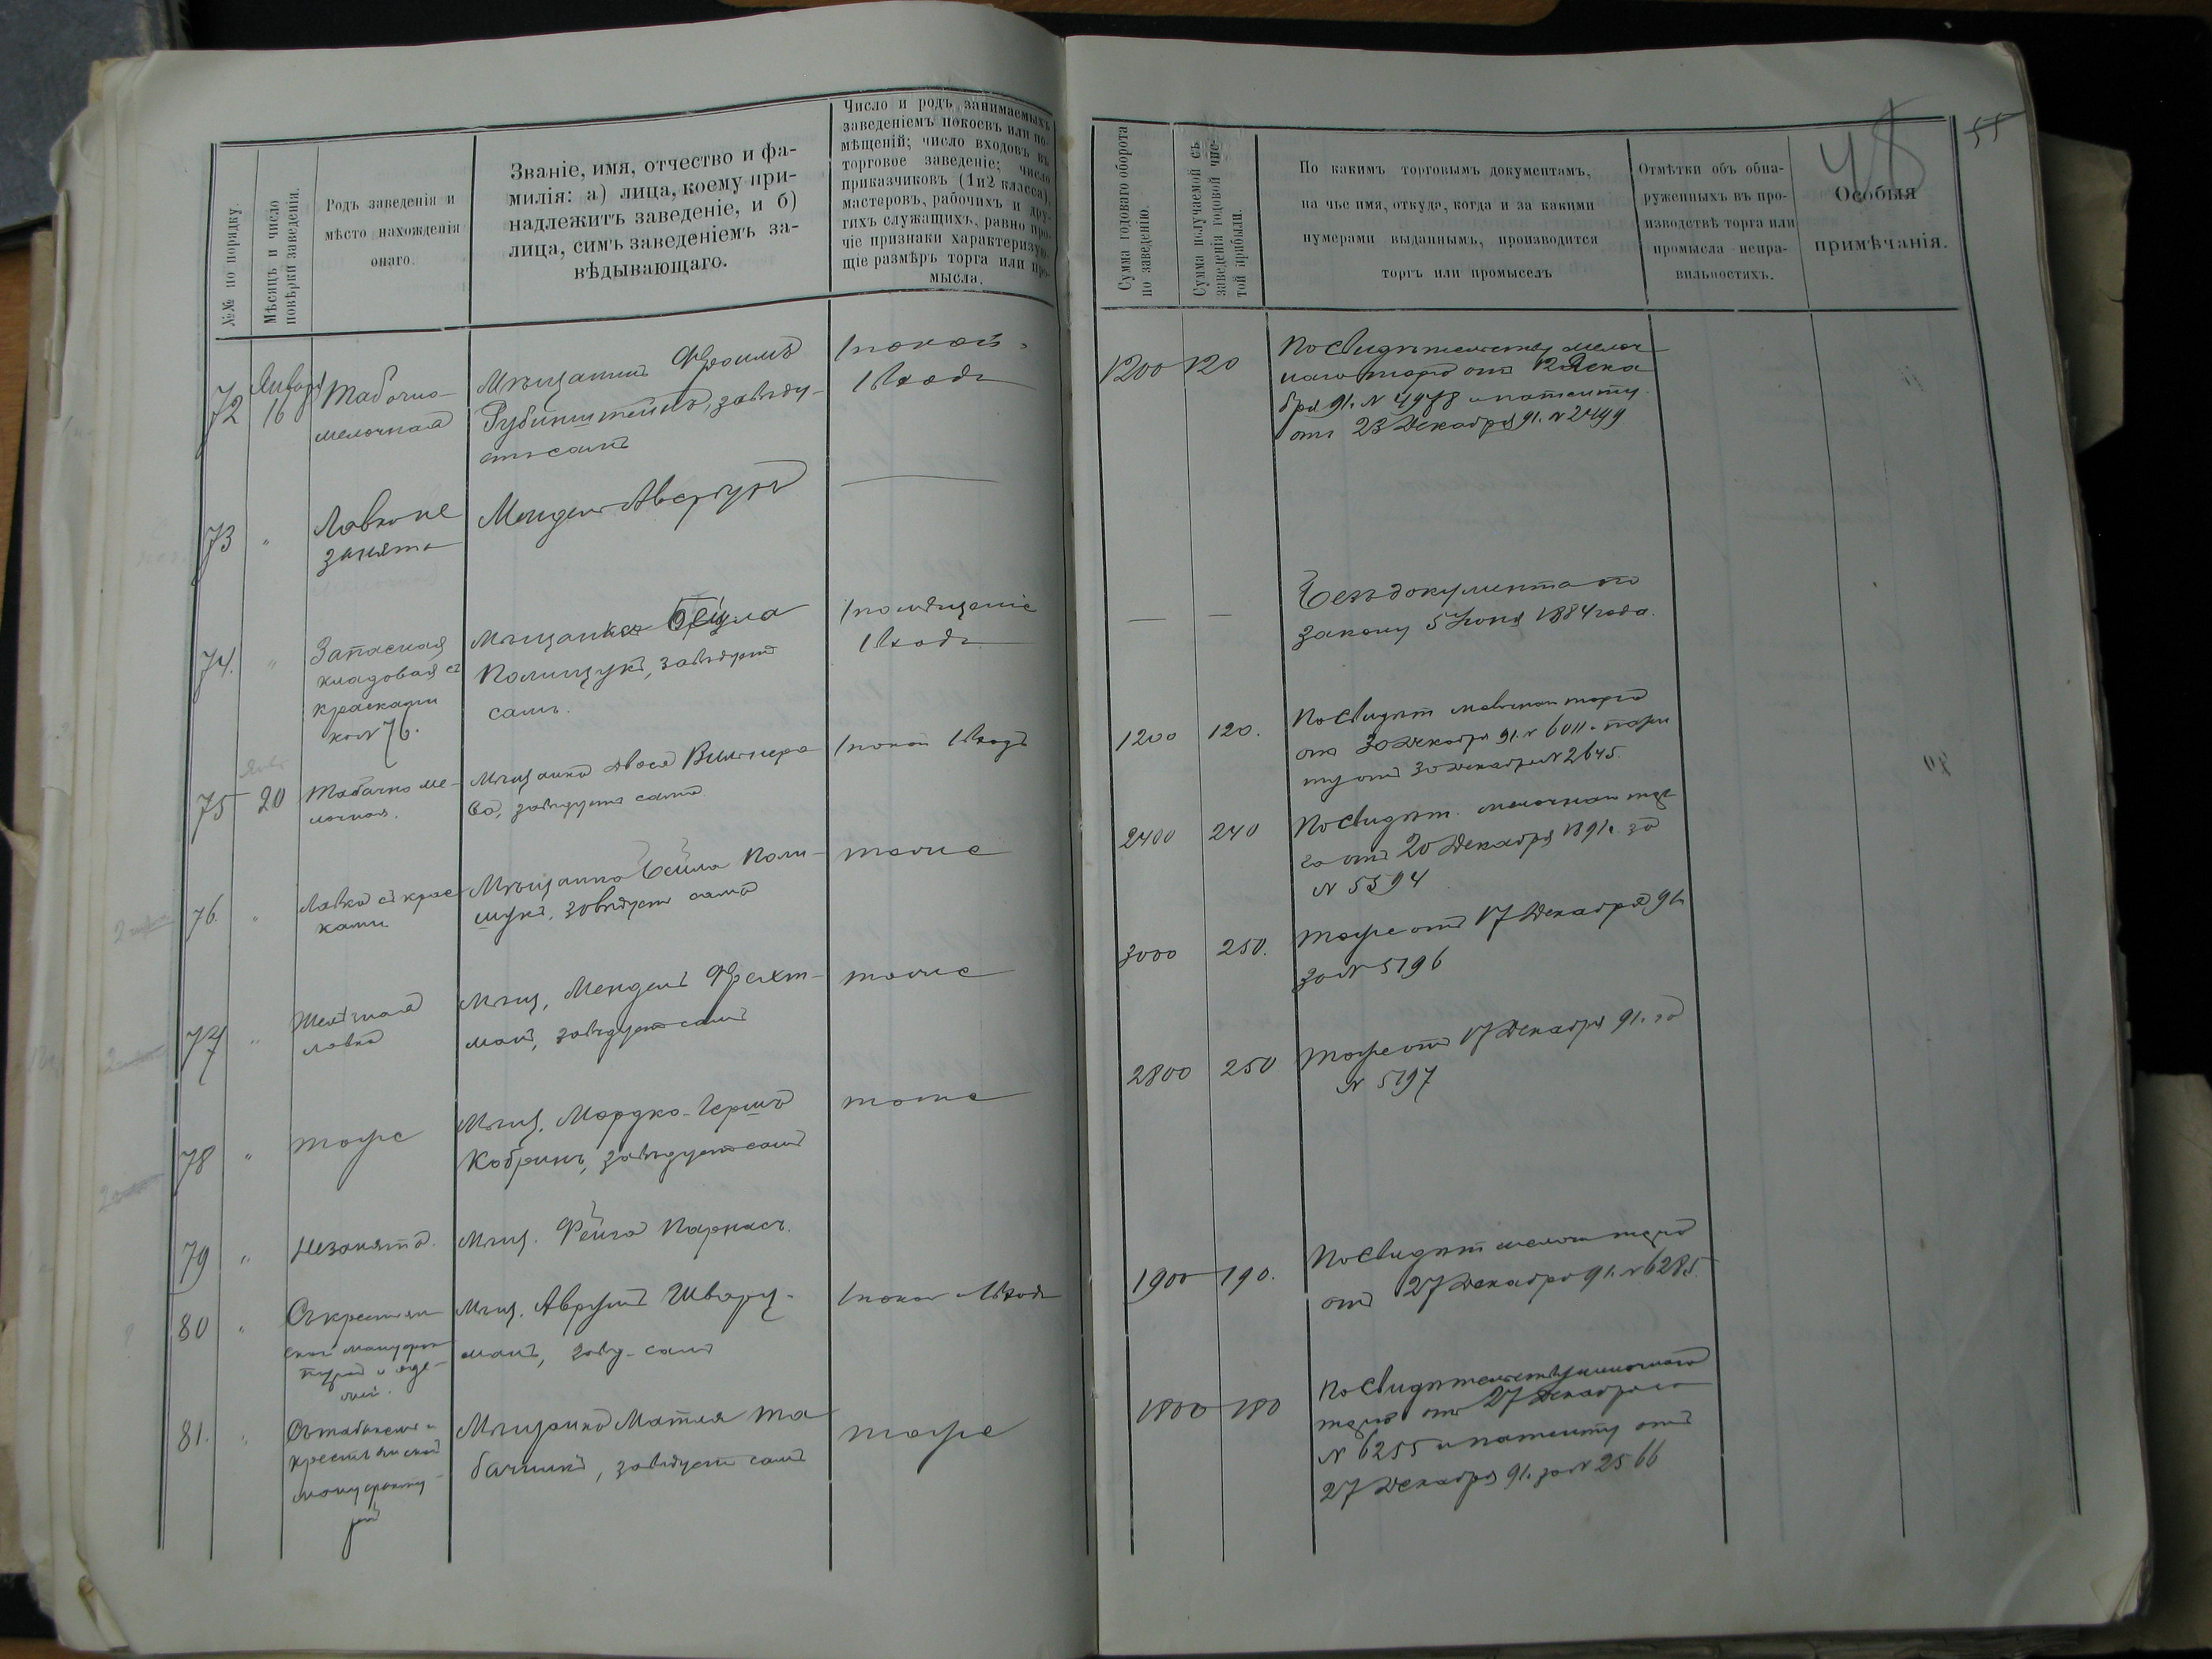 №№ по порядку.
Мѣсяцъ и число
повѣрки заведенія.
Родъ заведенія и
мѣсто нахожденія
онаго.
Званіе, имя, отчество и фа-
милія: а) лица, коему при-
надлежитъ заведеніе, и б)
лица, симъ заведеніемъ за-
вѣдывающаго.
Число и родъ занимаемыхъ
заведеніемъ покоевъ или по-
мѣщеній; число входовъ въ
торговое заведеніе; число
приказчиковъ (1 и 2 класса),
мастеровъ, рабочихъ и дру-
гихъ служащихъ, равно про-
чіе признаки характеризую-
щіе размѣръ торга или про-
мысла.
Сумма годоваго оборота
по заведенію.
Сумма получаемой съ
заведенія годовой чис-
той прибыли.
По какимъ торговымъ документамъ,
на чье имя, откуда, когда и за какими
нумерами выданнымъ, производится
торгъ или промыселъ
Отмѣтки объ обна-
руженныхъ въ про-
изводствѣ торга или
промысла непра-
вильностяхъ.
Особыя
примѣчанія.
48
55
72
Января
16
Табачно-
мелочная
Мѣщанинъ Фроимъ
Рубинштейнъ, завѣду-
етъ самъ
1 покой,
1 входъ
1200
120
По свидѣтельству мелоч
наго торга отъ 12 Дека
бря 91 г. N 4978 и патенту
отъ 23 Декабря 91 г. N 2499
73
"
Лавка не
занята
Мендель Авербухъ
74.
"
Запасная
кладовая съ
красками
къ N 76.
Мѣщанка Бейла
Полищукъ, завѣдуетъ
сама.
1 помѣщеніе
1 входъ
—
—
Безъ документа по
закону 5 Іюня 1884 года.
75
20
Табачно ме-
лочная.
Мѣщанка Двося Виннера
ва, завѣдуетъ сама
1 покой 1 входъ
1200
120.
По свидѣт мелочнаго торга
отъ 30 Декабря 91 г. N 6011 и патен
ту отъ 30 Декабря N 2645.
76.
"
Лавка съ крас
ками
Мѣщанка Бейла Поли-
щукъ, завѣдуетъ сама
тоже
2400
240
По свидѣт. мелочнаго тор
га отъ 20 Декабря 1891 г. за
N 5394
77
"
Желѣзная
лавка
Мѣщ. Мендель Фрахт-
манъ, завѣдуетъ самъ
тоже
3000
250.
Тоже отъ 17 Декабря 91 г.
за N 5196
78
"
тоже
Мѣщ. Мордко-Гершъ
Кобринъ, завѣдуетъ самъ
тоже
2800
250
Тоже отъ 17 Декабря 91 г. за
N 5197
79
"
Незанята.
Мѣщ. Фейга Парнасъ.
80
"
Съ крестьян
ской мануфак
турой и оде-
жей.
Мѣщ. Аврумъ Шварц-
манъ, завѣд. самъ
1 покой 1 входъ
1900
190.
По свидѣт мелочн торга
отъ 27 Декабря 91 г. N 6285.
81.
"
Съ табакомъ и
крестьянской
мануфакту-
рой
Мѣщанка Матля Та
бачникъ, завѣдуетъ сама
тоже
1800
180
По свидѣтельству мелочнаго
торга отъ 27 Декабря
N 6255 и патенту отъ
27 Декабря 91 г. за N 2566